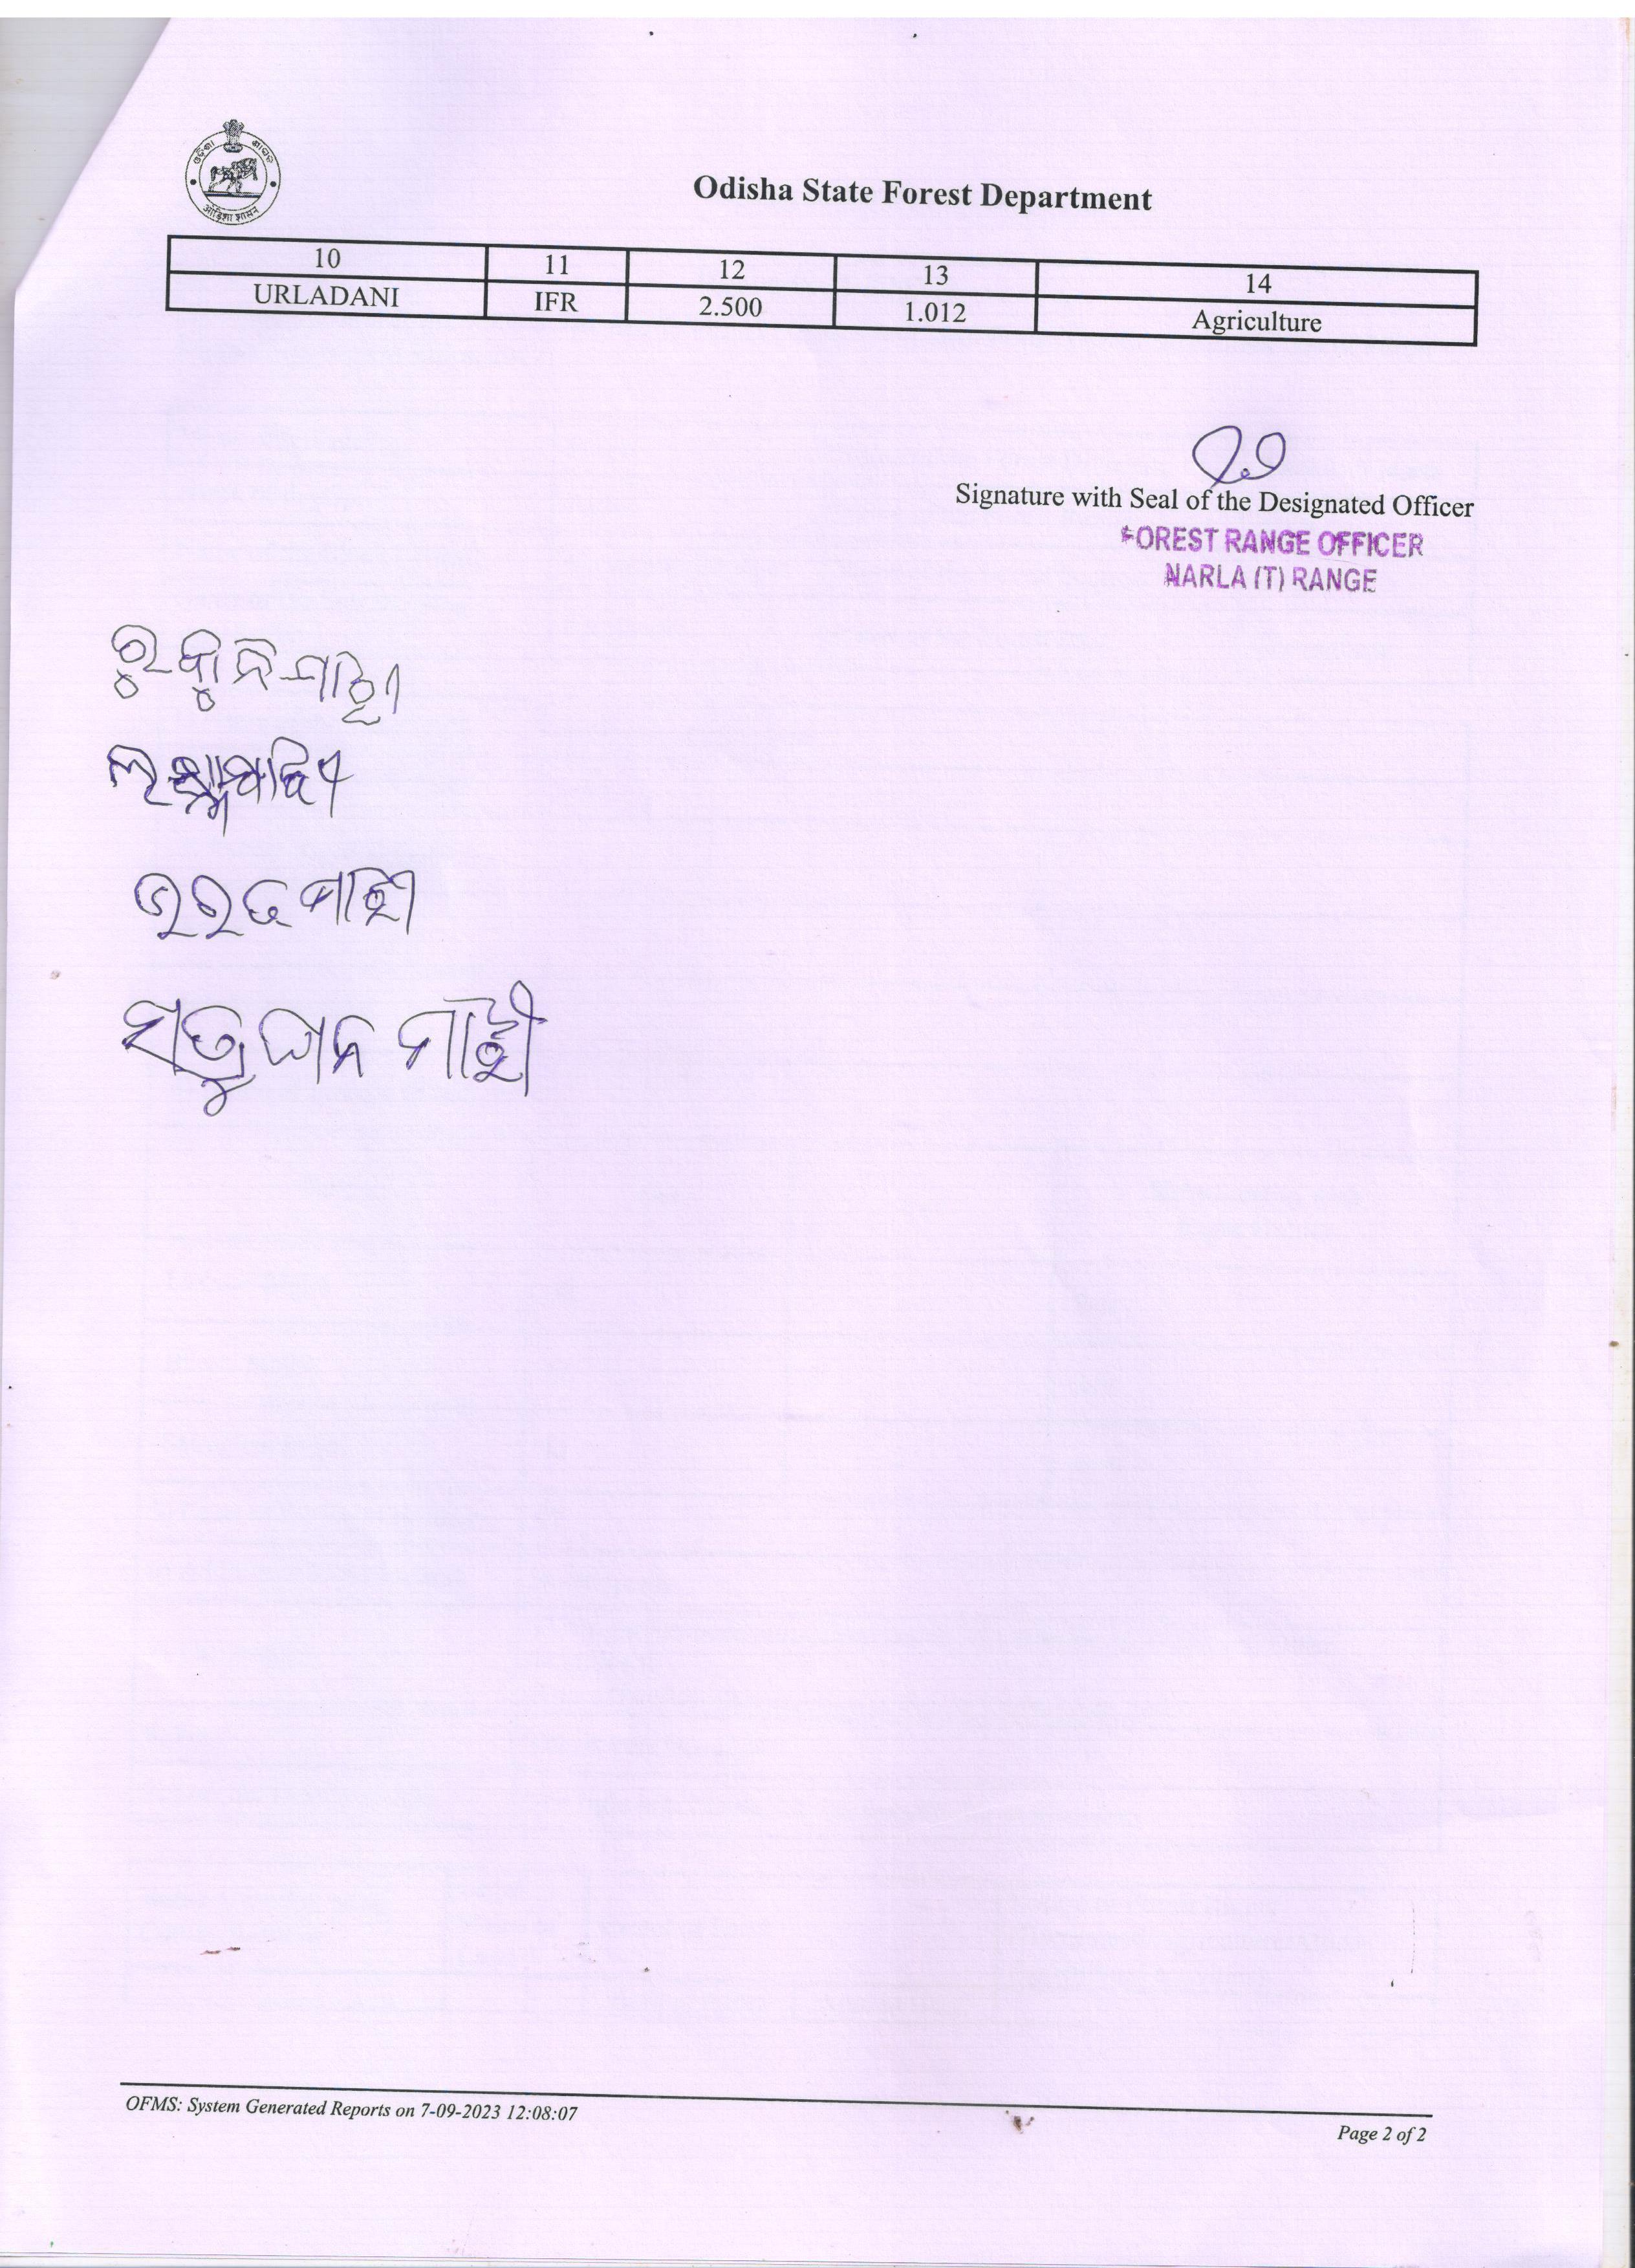 ଓଡ଼ିଶା ଶାସନ
ओड़िशा शासन
Odisha State Forest Department
10 11 12 13 14
URLADANI IFR 2.500 1.012 Agriculture
Signature with Seal of the Designated Officer
FOREST RANGE OFFICER
NARLA (T) RANGE
ଭରତ ମାଝୀ
ମାଝୀ
OFMS: System Generated Reports on 7-09-2023 12:08:07
Page 2 of 2